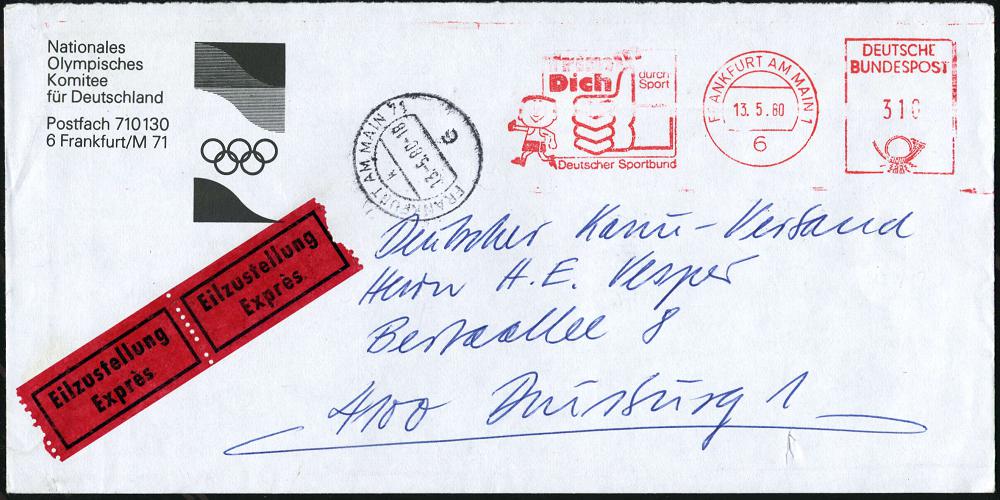 Nationales
Olympisches
Komitee
für Deutschland
Postfach 710130
6 Frankfurt/M 71
FRANKFURT AM MAIN 71
13.-5.80-18
k
Dich durch
Sport
Deutscher Sportbund
FRANKFURT AM MAIN 1
13.5.80
6
DEUTSCHE
BUNDESPOST
310
Eilzustellung
Exprès
Eilzustellung
Exprès
Deutscher Kanu-Verband
Herrn H. E. Vesper
Bertaallee 8
4100 Duisburg 1